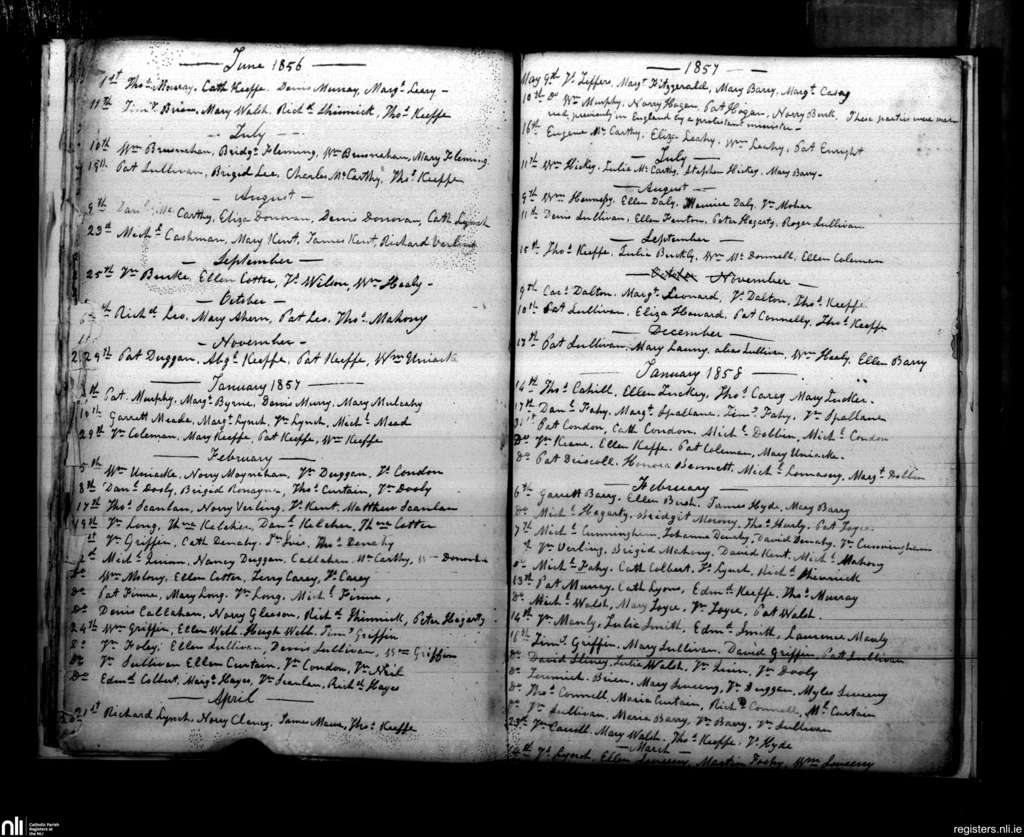 June 1856
1st Thos Murray, Cath Keeffe, Denis Murray, Margt Leary -
11th Timy Brien, Mary Walsh, Richd Shinnick, Thos Keeffe
- July -
10th Wm Brusnehan, Bridgt Fleming, Wm Brusnehan, Mary Fleming
15th Pat Sullivan, Brigid Lee, Charles McCarthy, Thos Keeffe
- August -
9th Danl Mc Carthy, Eliza Donovan, Denis Donovan, Cath Lynch
23d Michl Cashman, Mary Kent, James Kent, Richard Verling
- September -
25th Burke, Ellen Cotter, Wilson, Wm Healy -
- October -
th Richd Lee, Mary Ahern, Pat Lee, Thos Mahony
- November -
29th Pat Duggan, Abgl Keeffe, Pat Keeffe, Wm Uniack
January 1857
th Pat Murphy, Margt Byrne, Denis Murry, Mary Mulcahy
10th Garrett Meade, Margt Lynch, Lynch, Michl Mead
29th Coleman, Mary Keeffe, Pat Keeffe, Wm Keeffe
February
5th Wm Uniacke, Nory Moynihan, Duggan, Condon
8th Danl Dooly, Brigid Ronayne, Thos Curtain, Dooly
17th Thos Scanlan, Nory Verling, Kent, Matthew Scanlan
19th Long, Kelcher, Danl Kelcher, Cotter
Griffin, Cath Denahy, Thos Denahy
Michl Nancy Duggan, Callahan, McCarthy, Donovan
Do Wm Molony, Ellen Cotter, Terry Carey, Carey
Do Pat Finne, Mary Long, Long, Michl Finne,
Do Denis Callahan, Nory Gleason, Richd Shinnick, Peter Hagarty
24th Wm Griffin, Ellen Webb, Hugh Webb, Timy Griffin
Do Foley, Ellen Sullivan, Denis Sullivan, Griffin
Do Sullivan Ellen Curtain, Condon, Neil
Do Edmd Colbert, Margt Hayes, Scanlan, Richd Hayes
April
21st Richard Lynch, Nory Clancy, James Thos Keeffe
1857
May 9th Jeffers, Margt Fitzgerald, Mary Barry, Margt Casey
10th Do Wm Murphy, Norry Hogan, Pat Hogan, Norry Burk, These parties were mar-
ried previously in England by a protestant minister -
16th Eugene McCarthy, Eliza Leahy, Wm Leahy, Pat Enright
July
11th Wm Hickey, Julia McCarthy, Stephen Hickey, Mary Barry -
August
9th Wm Hennessy, Ellen Daly, Maurice Daly, Maher
11th Denis Sullivan, Ellen Fenton, Peter Hegarty, Roger Sullivan
September
15th Thos Keeffe, Julia Buckly, Wm McDonnell, Ellen Coleman
November
9th Dalton, Margt Leonard, Dalton, Thos Keeffe
10th Pat Sullivan, Eliza Howard, Pat Connelly, Thos Keeffe
December
17th Pat Sullivan, Mary alias Sullivan, Wm Healy, Ellen Barry
January 1858
14th Thos Cahill, Ellen Thos Carey Mary
17th Danl Fahy, Margt Spallane, Timy Fahy, Spallane
31st Pat Condon, Cath Condon, Michl Dobbin, Michl Condon
Do Keane, Ellen Keffe, Pat Coleman, Mary Uniacke.
Do Pat Driscoll, Honora Bennett, Michl Lomasny, Margt Dobbin
February
6th Garrett Barry, Ellen Bush, James Hyde, Mary Barry
Do Michl Hagarty, Bridgit Morony, Thos Hurly, Pat Joyce
7th Michl Cunningham, Johanna David Denahy, Cunningham
Verling, Brigid Mahony, David Kent, Michl Mahony
Michl Fahy, Cath Colbert, Lynch, Richd Shinnick
13th Pat Murray, Cath Lyons, Edmd Keeffe, Thos Murray
Do Michl Walsh, Mary Joyce, Joyce, Pat Walsh.
14th Manly, Julia Smith, Edmd Smith, Laurence Manly
16th Timy Griffin, Mary Sullivan, David Griffin, Pat Sullivan
Do David Julia Walsh, Quin, Dooly
Do Jeremiah Brien, Mary Sweeny, Duggan, Myles Sweeny
Do Thos Connell, Maria Curtain, Richd Connell, Curtain
Do Sullivan, Maria Barry, Barry, Sullivan
23d Carroll, Mary Walsh, Thos Keeffe, Hyde
- March -
Lynch, Ellen Sweeny, Martin Wm Sweeny
nli
Catholic Parish
Registers at
the NLI
registers.nli.ie